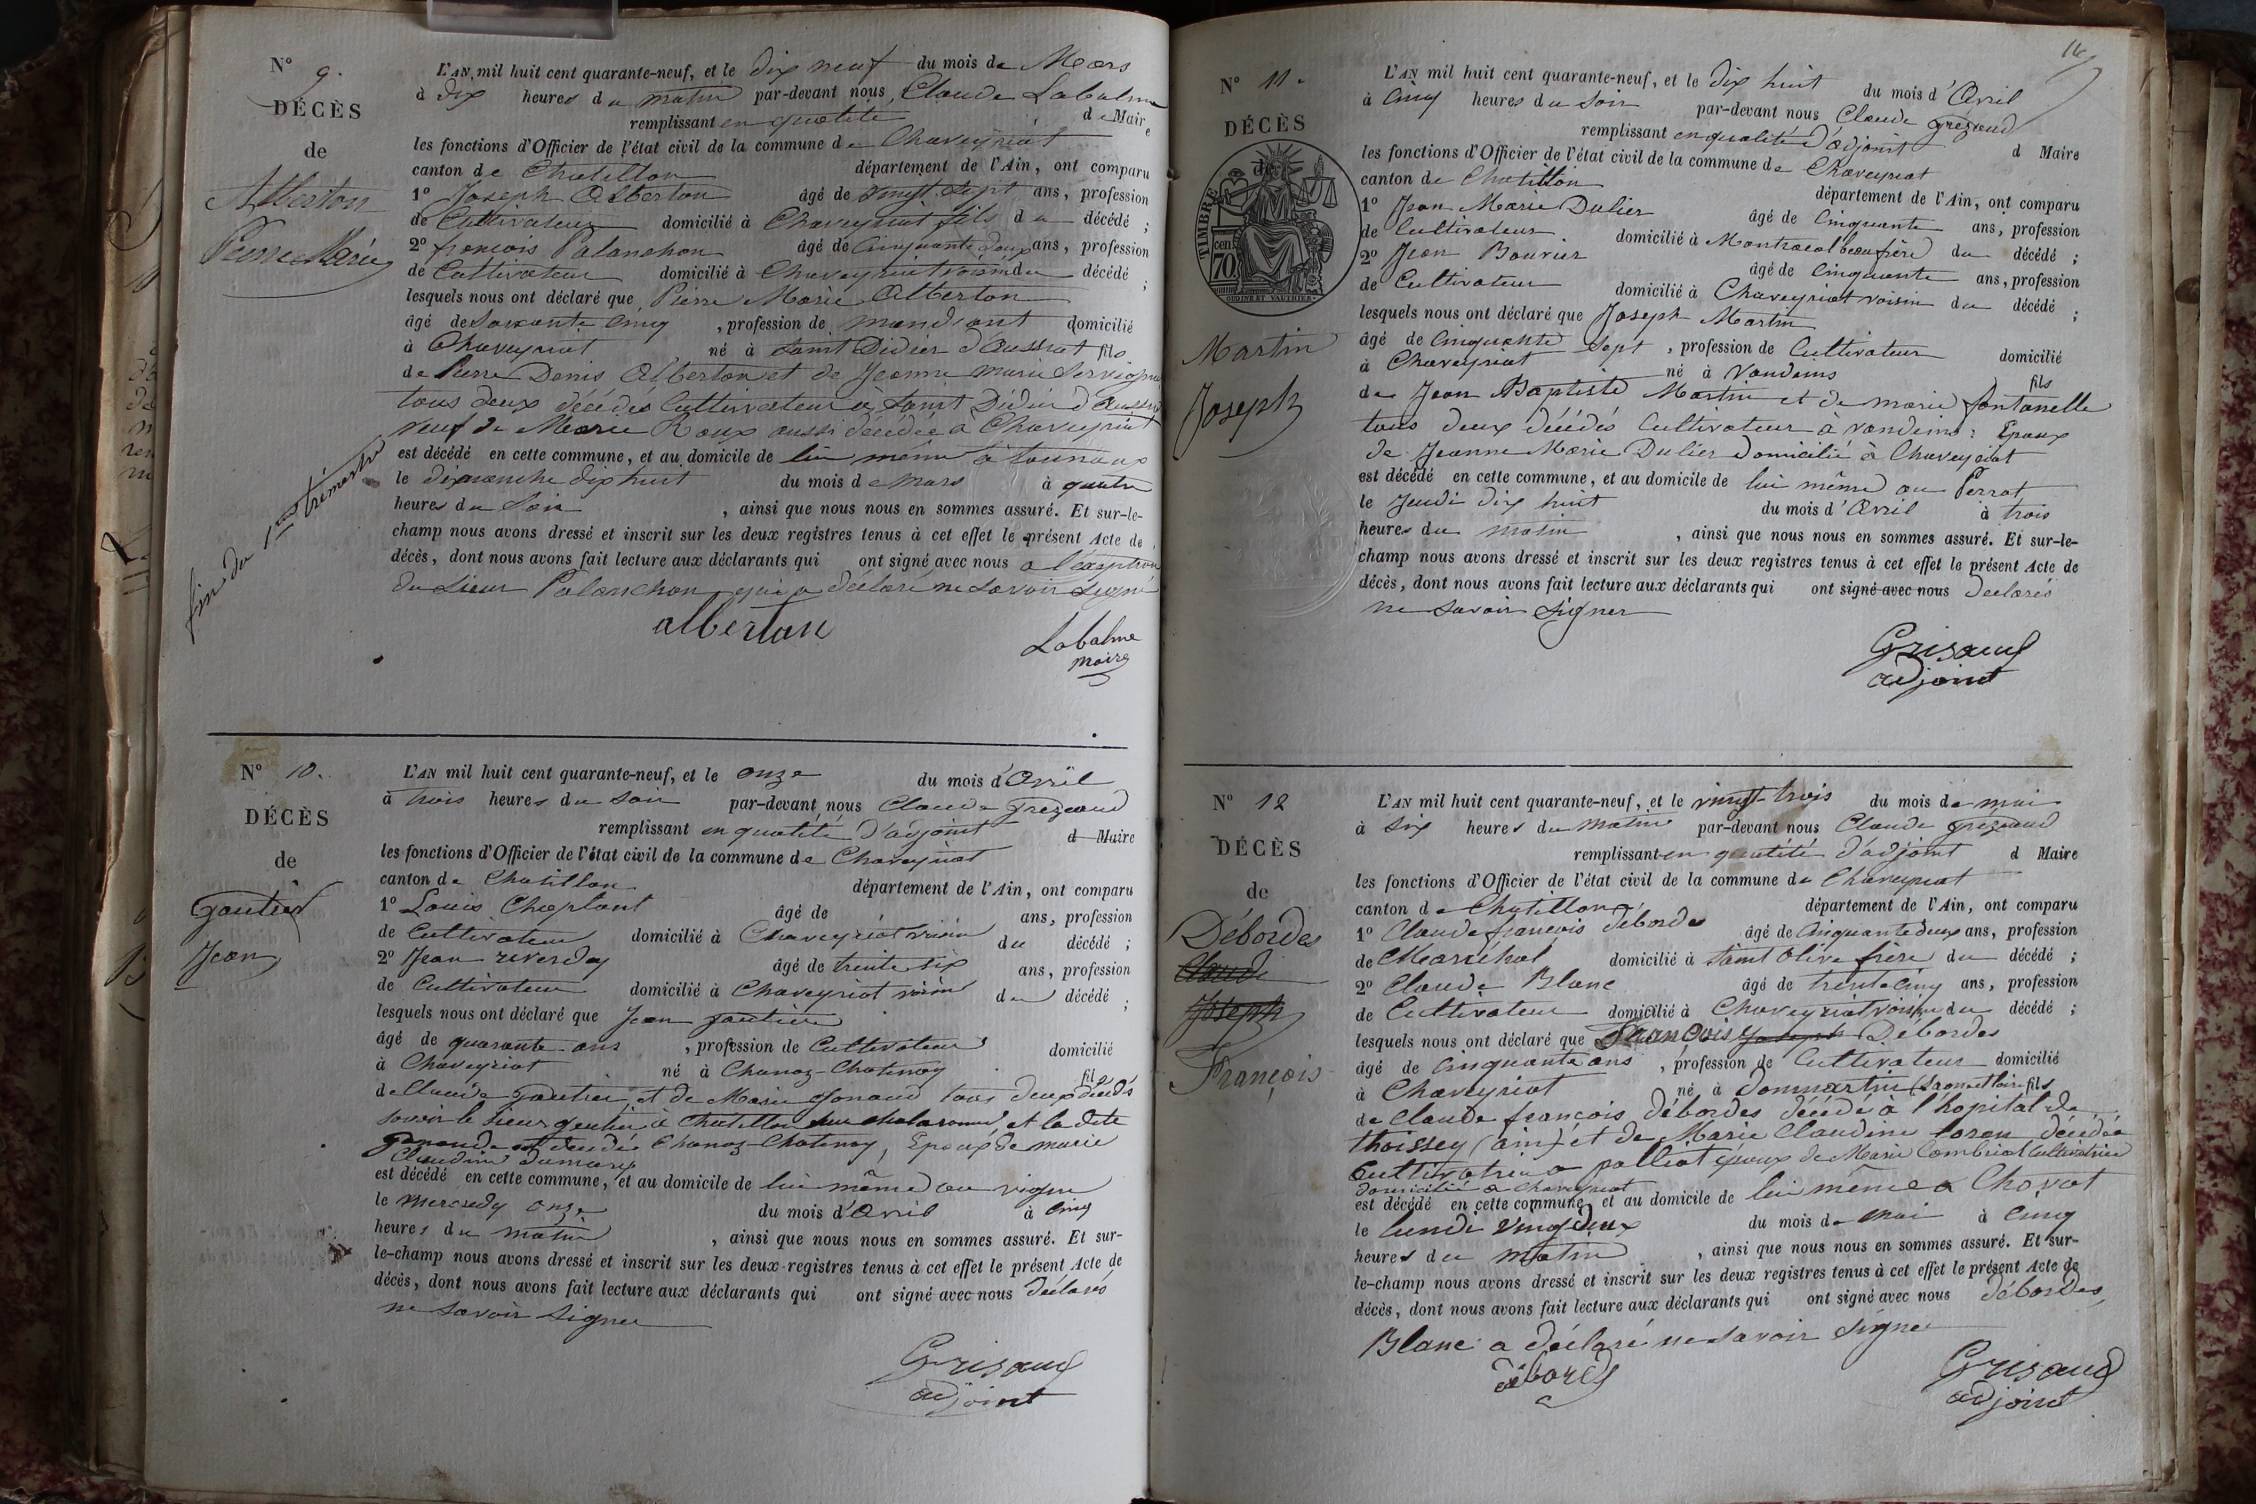 N° 9.
DÉCÈS
de
Alberton
Pierre Marie
fin du 1er trimestre
L'AN mil huit cent quarante-neuf, et le dix neuf du mois de Mars
à dix heures du matin par-devant nous, Claude Labalme
remplissant en qualité de Maire
les fonctions d'Officier de l'état civil de la commune de Chaveyriat
canton de Chatillon département de l'Ain, ont comparu
1° Joseph Alberton âgé de vingt sept ans, profession
de Cultivateur domicilié à Chaveyriat fils du décédé ;
2° françois Palanchon âgé de Cinquante deux ans, profession
de Cultivateur domicilié à Chaveyriat voisin du décédé ;
lesquels nous ont déclaré que Pierre Marie Alberton
âgé de soixante cinq , profession de mendiant domicilié
à Chaveyriat né à saint Didier d'Aussiat fils
de Pierre Denis Alberton et de Jeanne marie
tous deux décédés Cultivateur a saint Didier d'Aussiat
veuf de Marie Roux aussi décédée à Chaveyriat
est décédé en cette commune, et au domicile de lui même à
le dimanche dix huit du mois de mars à quatre
heures du Soir , ainsi que nous nous en sommes assuré. Et sur-le-
champ nous avons dressé et inscrit sur les deux registres tenus à cet effet le présent Acte de
décès, dont nous avons fait lecture aux déclarants qui ont signé avec nous a l'exeption
du sieur Palanchon qui a déclaré ne savoir signé
alberton
Labalme
maire
N° 10.
DÉCÈS
de
Gautier
Jean
L'AN mil huit cent quarante-neuf, et le onze du mois d'Avril
à trois heures du soir par-devant nous Claude Grézaud
remplissant en qualité d'adjoint d Maire
les fonctions d'Officier de l'état civil de la commune de Chaveyriat
canton de Chatillon département de l'Ain, ont comparu
1° Louis Chaplant âgé de ans, profession
de Cultivateur domicilié à Chaveyriat voisin du décédé ;
2° Jean reverdy âgé de trente six ans, profession
de Cultivateur domicilié à Chaveyriat voisin du décédé ;
lesquels nous ont déclaré que Jean gautier
âgé de quarante ans , profession de Cultivateur domicilié
à Chaveyriat né à Chanoz-Chatenay fil
de Claude Gautier et de Marie Gonaud tous deux décédés
savoir le sieur gautier à Chatillon sur chalaronne et la dite
décédée Chanoz-Chatenay, Epoux de marie
Claudine
est décédé en cette commune, et au domicile de lui même au vigne
le mercredy onze du mois d'Avril à cinq
heures du matin , ainsi que nous nous en sommes assuré. Et sur-
le-champ nous avons dressé et inscrit sur les deux registres tenus à cet effet le présent Acte de
décès, dont nous avons fait lecture aux déclarants qui ont signé avec nous déclarés
ne savoir signer
Grisaud
adjoint
N° 11.
DÉCÈS
de
TIMBRE
70 cen
OUDINE ET VAUTHIER
Martin
Joseph
L'AN mil huit cent quarante-neuf, et le dix huit du mois d'Avril
à cinq heures du Soir par-devant nous Claude Grézaud
remplissant en qualité d'adjoint d Maire
les fonctions d'Officier de l'état civil de la commune de Chaveyriat
canton de Chatillon département de l'Ain, ont comparu
1° Jean Marie Dulier âgé de Cinquante ans, profession
de Cultivateur domicilié à Montracol beaufrère du décédé ;
2° Jean Bouvier âgé de cinquante ans, profession
de Cultivateur domicilié à Chaveyriat voisin du décédé ;
lesquels nous ont déclaré que Joseph Martin
âgé de cinquante sept , profession de Cultivateur domicilié
à Chaveyriat né à Vandeins fils
de Jean Baptiste Martin et de marie fontanelle
tous deux décédés Cultivateur à vandeins : Epoux
de Jeanne Marie Dulier domicilié à Chaveyriat
est décédé en cette commune, et au domicile de lui même au Perrat
le Jeudi dix huit du mois d'Avril à trois
heures du matin , ainsi que nous nous en sommes assuré. Et sur-le-
champ nous avons dressé et inscrit sur les deux registres tenus à cet effet le présent Acte de
décès, dont nous avons fait lecture aux déclarants qui ont signé avec nous déclarés
ne savoir signer
Grisaud
adjoint
N° 12
DÉCÈS
de
Débordes
Claude
Joseph
François
L'AN mil huit cent quarante-neuf, et le vingt-trois du mois de mai
à six heures du matin par-devant nous Claude Grézaud
remplissant en qualité d'adjoint d Maire
les fonctions d'Officier de l'état civil de la commune de Chaveyriat
canton de Chatillon département de l'Ain, ont comparu
1° Claude françois débordes âgé de Cinquante deux ans, profession
de Maréchal domicilié à saint Olive frère du décédé ;
2° Claude Blanc âgé de trente cinq ans, profession
de Cultivateur domicilié à Chaveyriat voisin du décédé ;
lesquels nous ont déclaré que François Joseph Débordes
âgé de cinquante ans , profession de Cultivateur domicilié
à Chaveyriat né à dommartin (Saone et loire fils
de Claude françois débordes décédé à l'hopital de
thoissey (ain) et de Marie Claudine loron décédée
Cultivatrice a polliat époux de Marie Combriat Cultivatrice
domicilié a Chaveyriat
est décédé en cette commune, et au domicile de lui même a Chovat
le lundi vingt deux du mois de mai à cinq
heures du matin , ainsi que nous nous en sommes assuré. Et sur-
le-champ nous avons dressé et inscrit sur les deux registres tenus à cet effet le présent Acte de
décès, dont nous avons fait lecture aux déclarants qui ont signé avec nous débordes,
Blanc a déclaré ne savoir signer
débords
Grisaud
adjoint